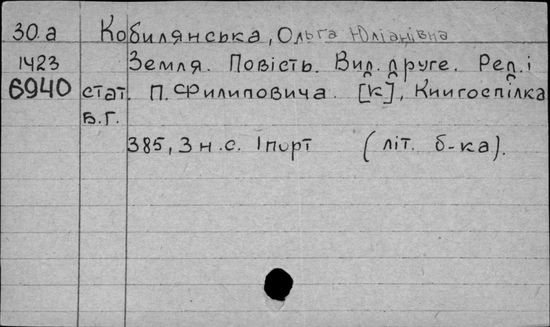 30.а Кобилянська, Ольга Юліанівна
1423 Земля. Повість. Вид. друге. Ред. і
6940 стат. П. Филиповича. [К], Книгоспілка
Б.Г.
385, 3 н.с. 1 порт (літ. б-ка).